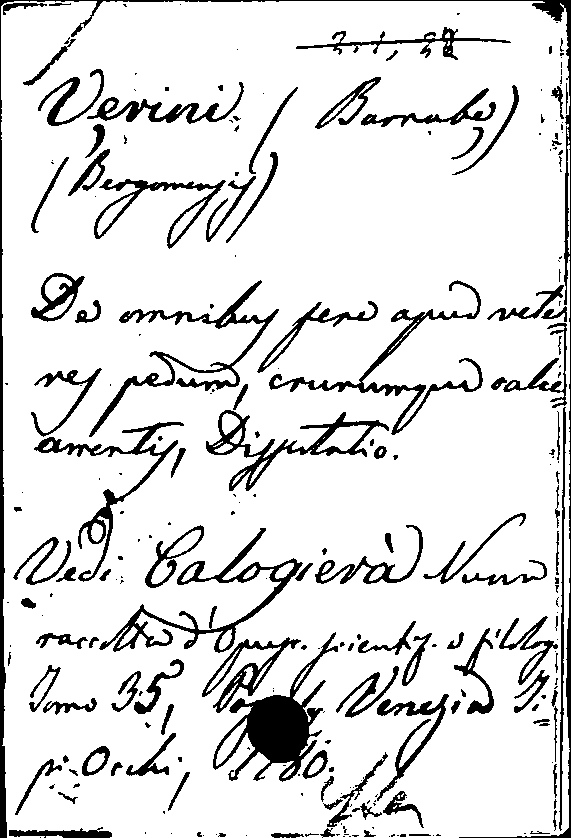 Verini (Barnabe)
(Bergomensis)
De omnibus fere apud vete=
res pedum, crurumque calce=
amentis, Disputatio.
Vedi Calogierà Nuova
raccolta d'Opusc. scientif. e filolog.
Tomo 35, Venezia Ti=
pi Occhi, 1780.